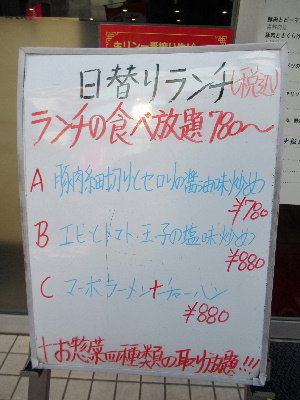 日替りランチ(税込)
ランチの食べ放題780〜
A 豚肉細切りとセロリの醤油味炒め
¥780
B エビとトマト・玉子の塩味炒め
¥880
C マーボーラーメン+チャーハン
¥880
+お惣菜四種類の取り放題!!!